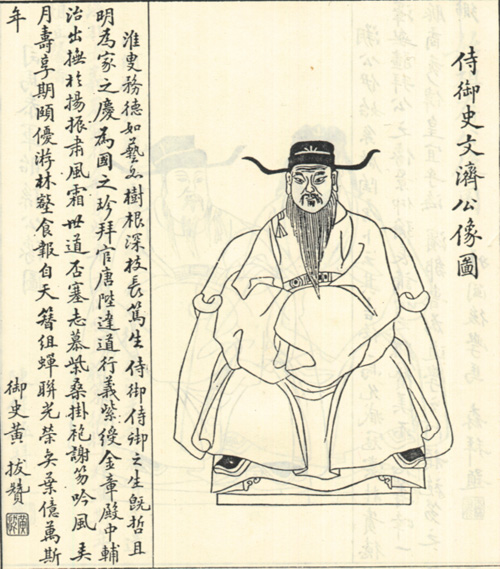 侍御史文濟公像圖
淮叟務德如藝之樹根深枝長篤生侍御侍御之生既哲且
明為家之慶為國之珍拜官唐陛達道行義紫綬金章殿中輔
治出撫於揚振肅風霜世道否塞志慕柴桑掛袍謝笏吟風弄
月壽享期頤優游林壑食報自天簪組蟬聯光榮奕葉億萬斯
年
御史黃 拔贊